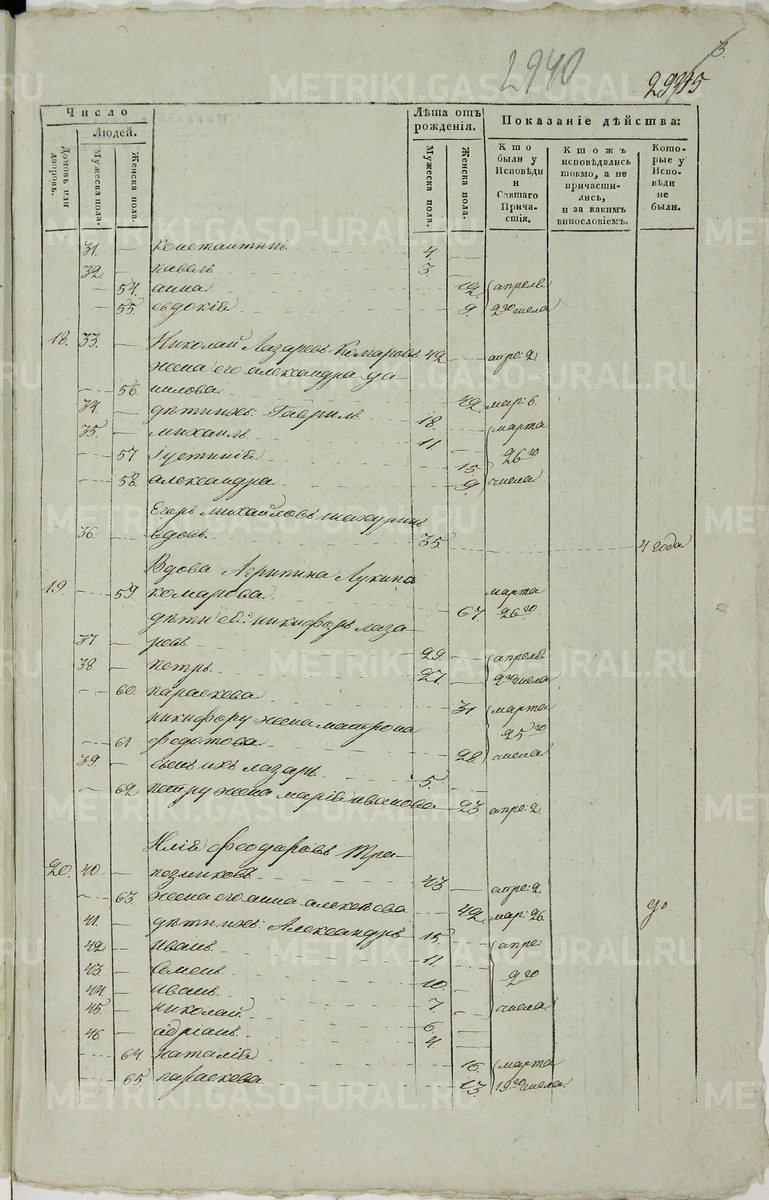 2940
3.
29335
Число
Людей.
Домовъ или дворовъ.
Мужеска пола.
Женска пола.
Лѣта отъ рожденія.
Мужеска пола.
Женска пола.
Показаніе дѣйства:
Кто были у Исповѣди и Святаго Причастія.
Ктожъ исповѣдались токмо, а не причастились, и за какимъ винословіемъ.
Которые у Исповѣди не были.
31. Константинъ 4.
32. павелъ 3
54. анна 12. апреля
55. евдокія 9. 2го числа
18. 33. Николай Лазаревъ Комаровъ 42 апре: 2.
жена его александра да-
56. нилова 42 мар: 6.
34. дѣти ихъ: Гавриилъ 18. марта
35. михаилъ 11
57 Iустинія 15. 26го
58. александра 9. числа
Егоръ михайловъ
36. вдовъ 35 4 года
Вдова Агрипина Лукина
19. 59. комарова 67. марта 26го
дѣти ея: никифоръ лаза-
37 ревъ 29. апреля
38. петръ 27. 2го числа
60. параскева 31. марта
никифору жена матрона 25го
61 федотова 28. числа
39. сынъ ихъ лазарь 5.
62. петру жена марія иванова 23 апре: 2.
Илія феодоровъ Тра-
20. 40. позниковъ 43 апре: 2.
63. жена его анна алексѣева 42. мар: 26.
41. дѣти ихъ: Александръ 15. апре:
42 иванъ 11.
43. Семенъ 10. 2го
44. иванъ 7. числа
45. николай 6.
46 адріанъ 4
64 наталія 16. марта
65. параскева 13 19го числа
METRIKI.GASO-URAL.RU